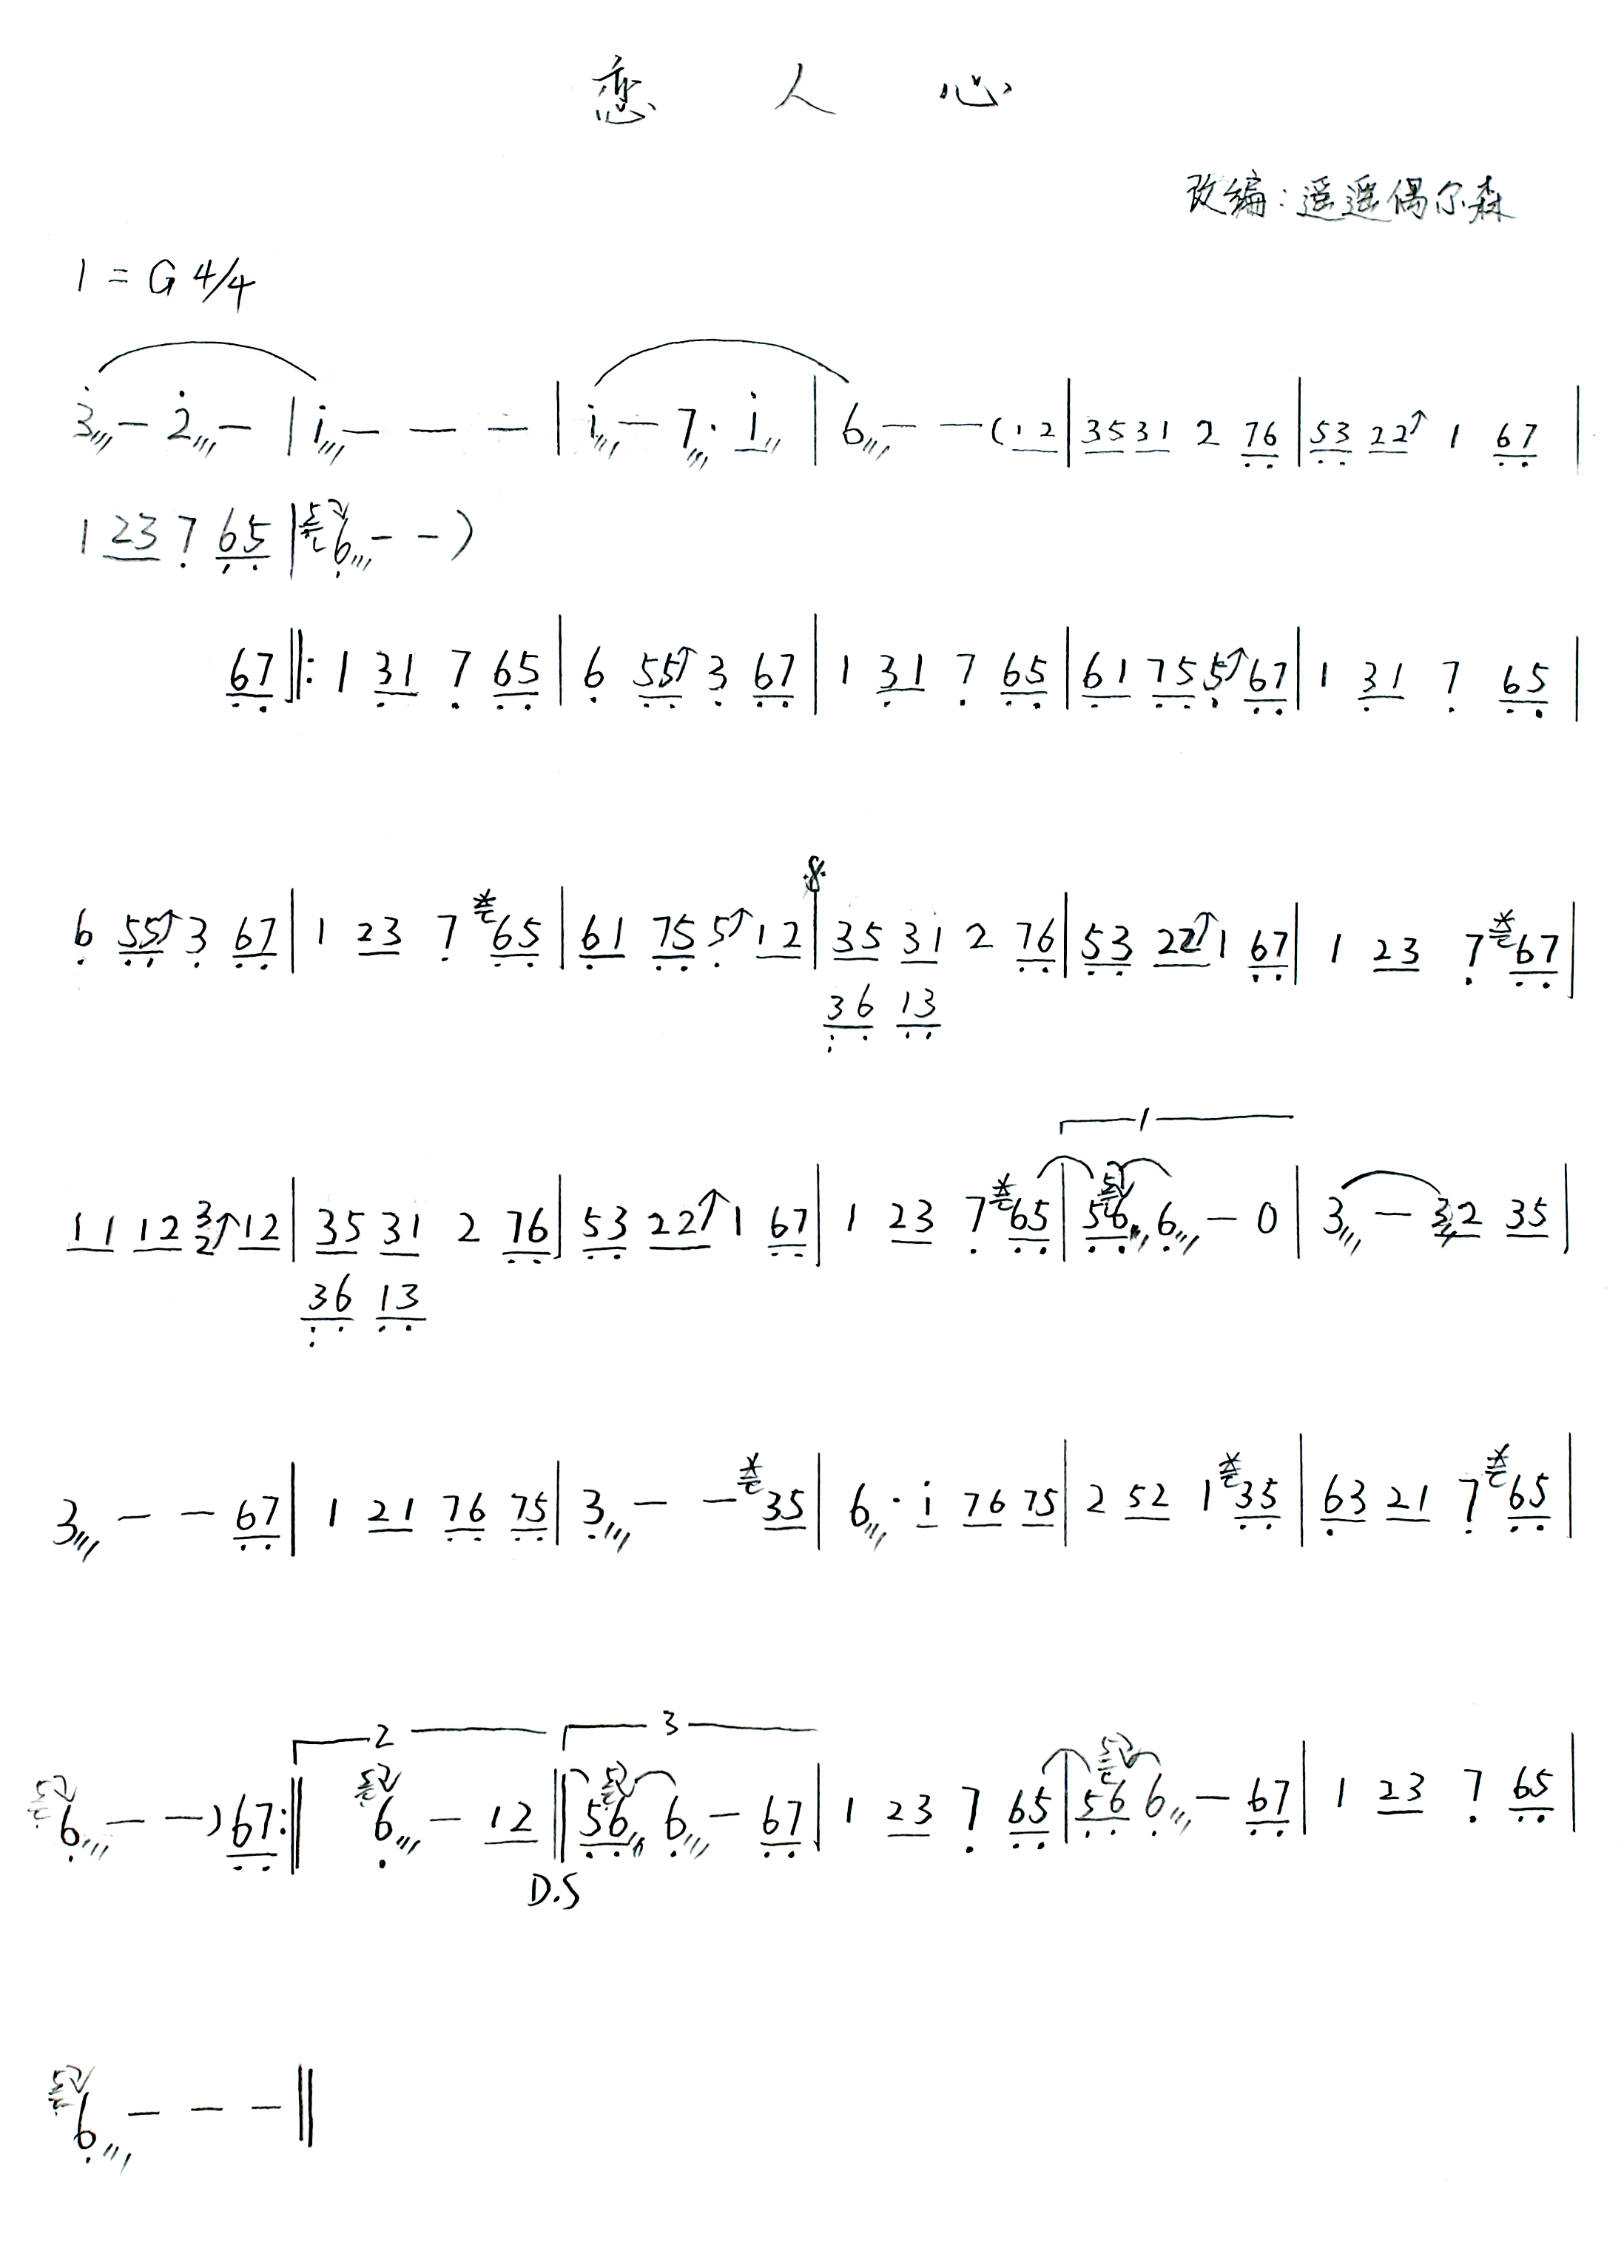 恋 人 心
改编：遥遥偶尔森
1 = G 4/4
3 - 2 - | i - - - | i - 7 · i | 6 - - ( 1 2 | 35 31 2 76 | 53 22↗ 1 67 |
1 23 7 65 | 6 - - )
67 ‖: 1 31 7 65 | 6 55↗ 3 67 | 1 31 7 65 | 61 75 5↗ 67 | 1 31 7 65 |
6 55↗ 3 67 | 1 23 7 65 | 61 75 5↗ 12 | 35 31 2 76 | 53 22↗ 1 67 | 1 23 7 67 |
36 13
1
11 12 3↗2 12 | 35 31 2 76 | 53 22↗ 1 67 | 1 23 7 65 | 56 6 - 0 | 3 - 32 35 |
36 13
3 - - 67 | 1 21 76 75 | 3 - - 35 | 6 · i 76 75 | 2 52 1 35 | 63 21 7 65 |
2 3
6 - - ) 67 :‖ 6 - 12 ‖ 56 6 - 67 | 1 23 7 65 | 56 6 - 67 | 1 23 7 65 |
D.S
6 - - - ‖